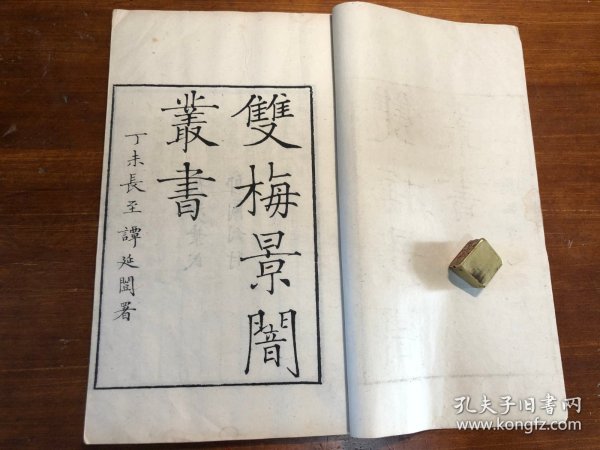 雙梅景闇
叢書
丁未長至譚延闓署
孔夫子旧书网
www.kongfz.com